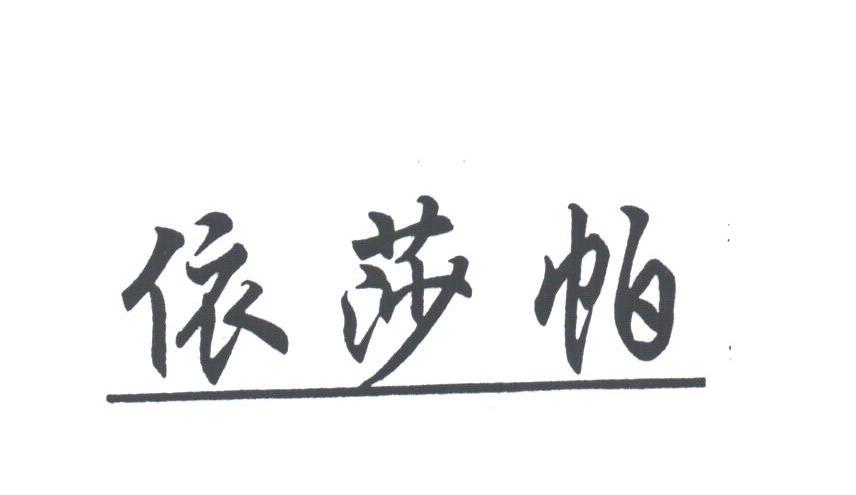 依莎帕